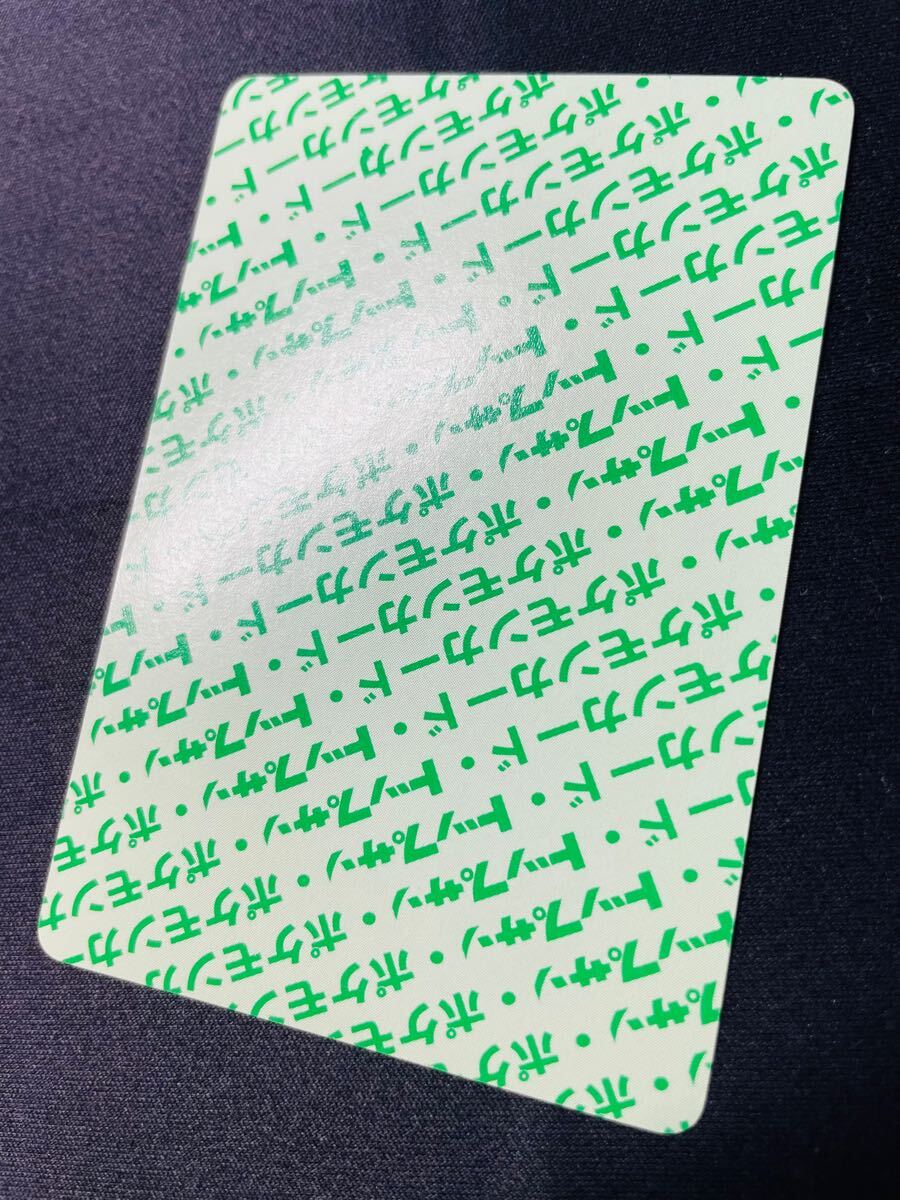 ン・ポ
プサン・ポケ
トップサン・ポケモ
ド・トップサン・ポケモン
ド・トップサン・ポケモンカ
カード・トップサン・ポケモンカー
ンカード・トップサン・ポケモンカ
ケモンカード・トップサン・ポケモ
・ポケモンカード・トップサン・ポ
サン・ポケモンカード・トップサン
ップサン・ポケモンカード・トップ
・トップサン・ポケモンカード・ト
ード・トップサン・ポケモンカード
ンカード・トップサン・ポケモンカ
ケモンカード・トップサン・ポケモン
ポケモンカード・トップサン・ポケ
ン・ポケモンカード・トップサン・
・ポケモンカード・トップ
ポケモンカード・ト
ケモンカード・
モンカ